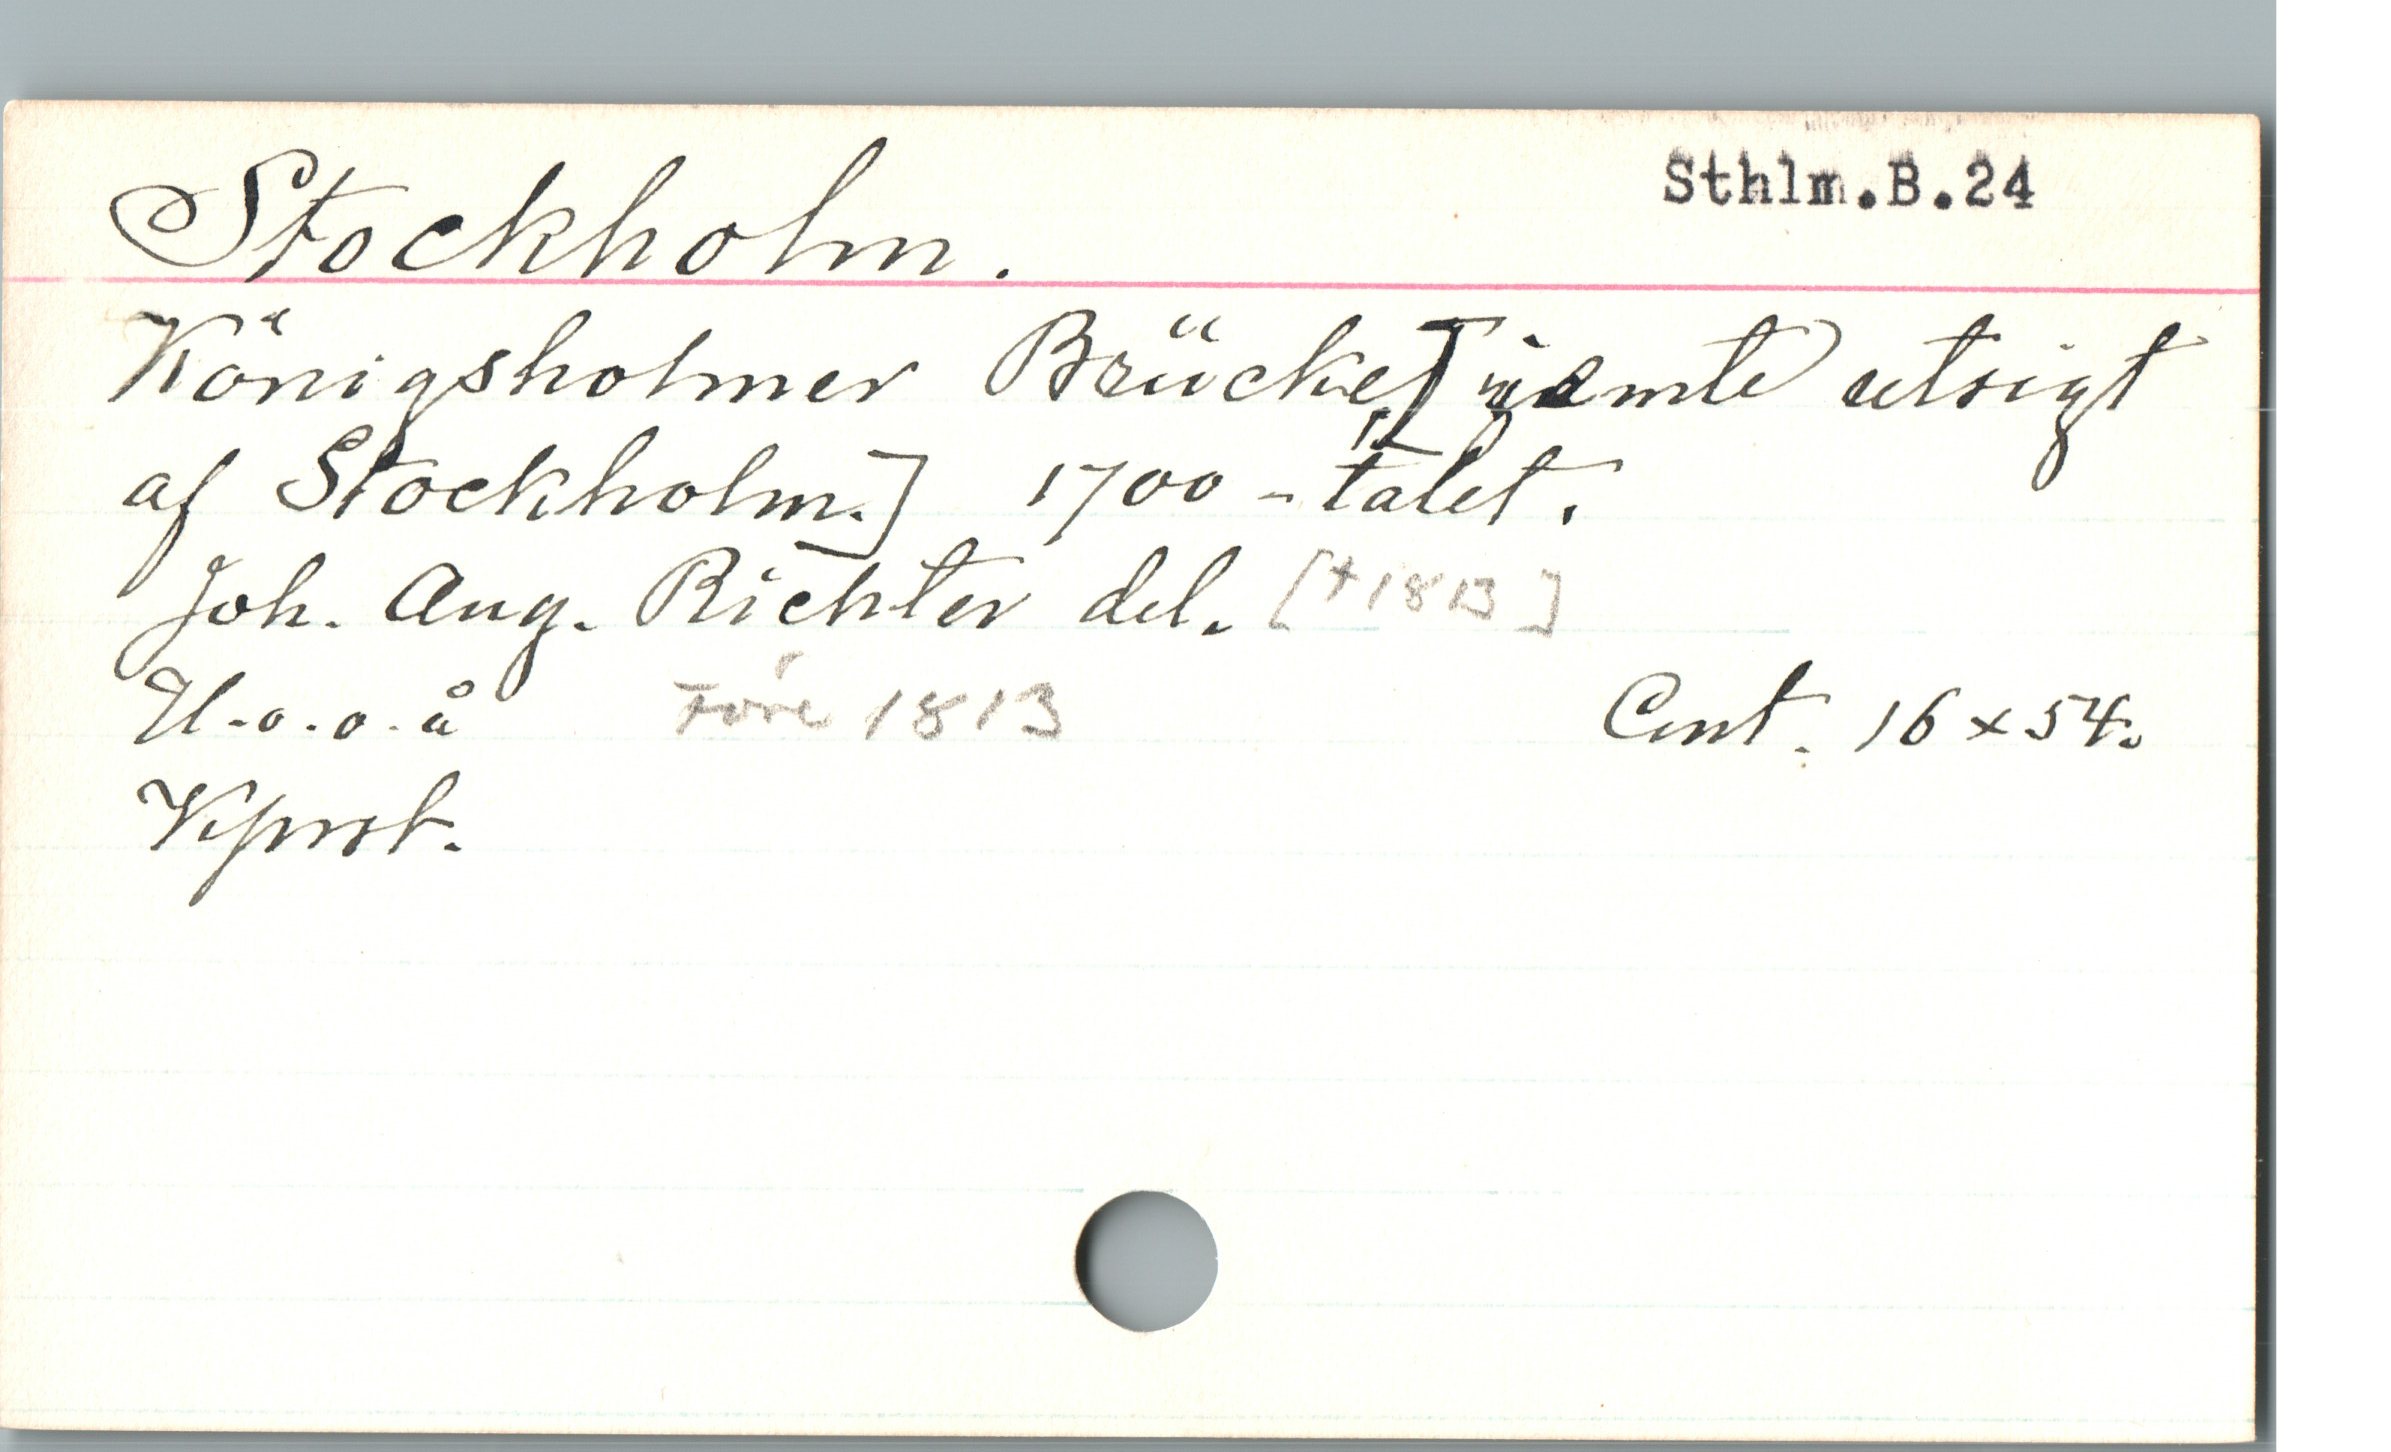 Stockholm. Sthlm.B.24
Königsholmer Brücke [jemte utsigt
af Stockholm.] 1700-talet.
Joh. Aug. Richter del. [†1813]
U.o.o.å före 1813 Cent. 16 x 54.
Kprst.